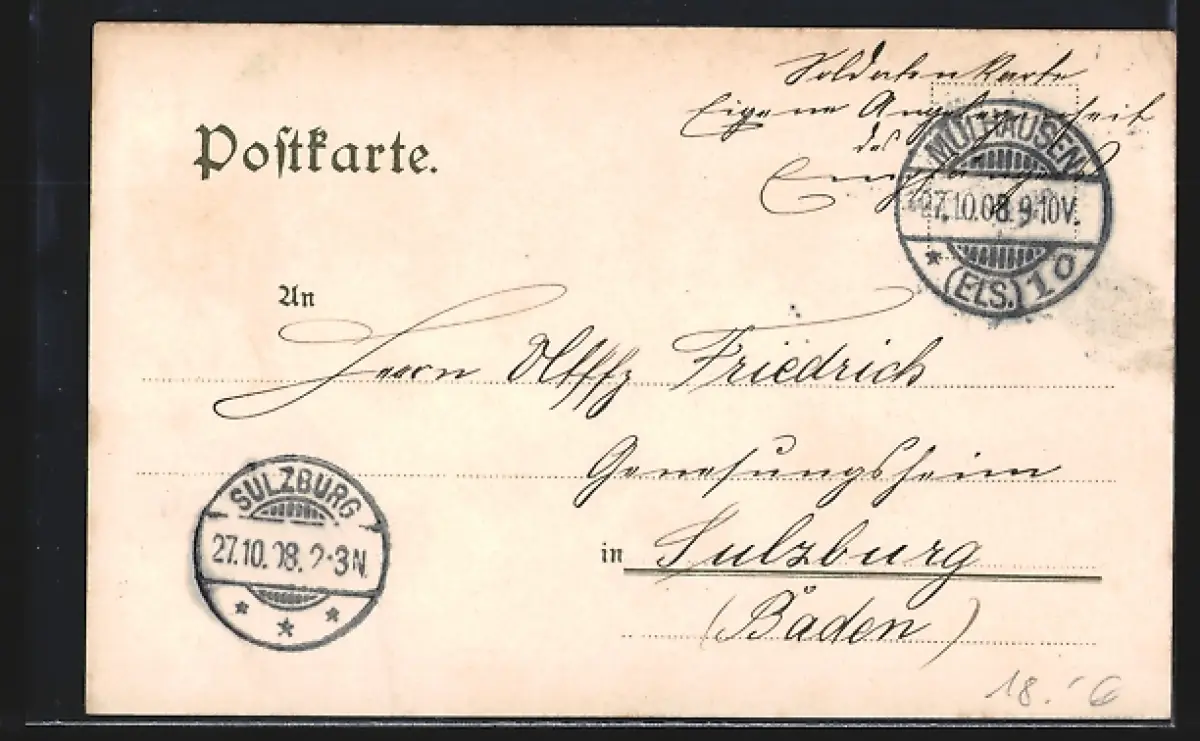 Soldatenkarte
Eigene Angelegenheit
des
Empfängers
Postkarte.
MÜLHAUSEN
27.10.08. 9-10V.
* (ELS.) 1 o
An
Herrn Friedrich
Genesungsheim
SULZBURG
27.10.08. 2-3N.
* * *
in Sulzburg
(Baden)
18.